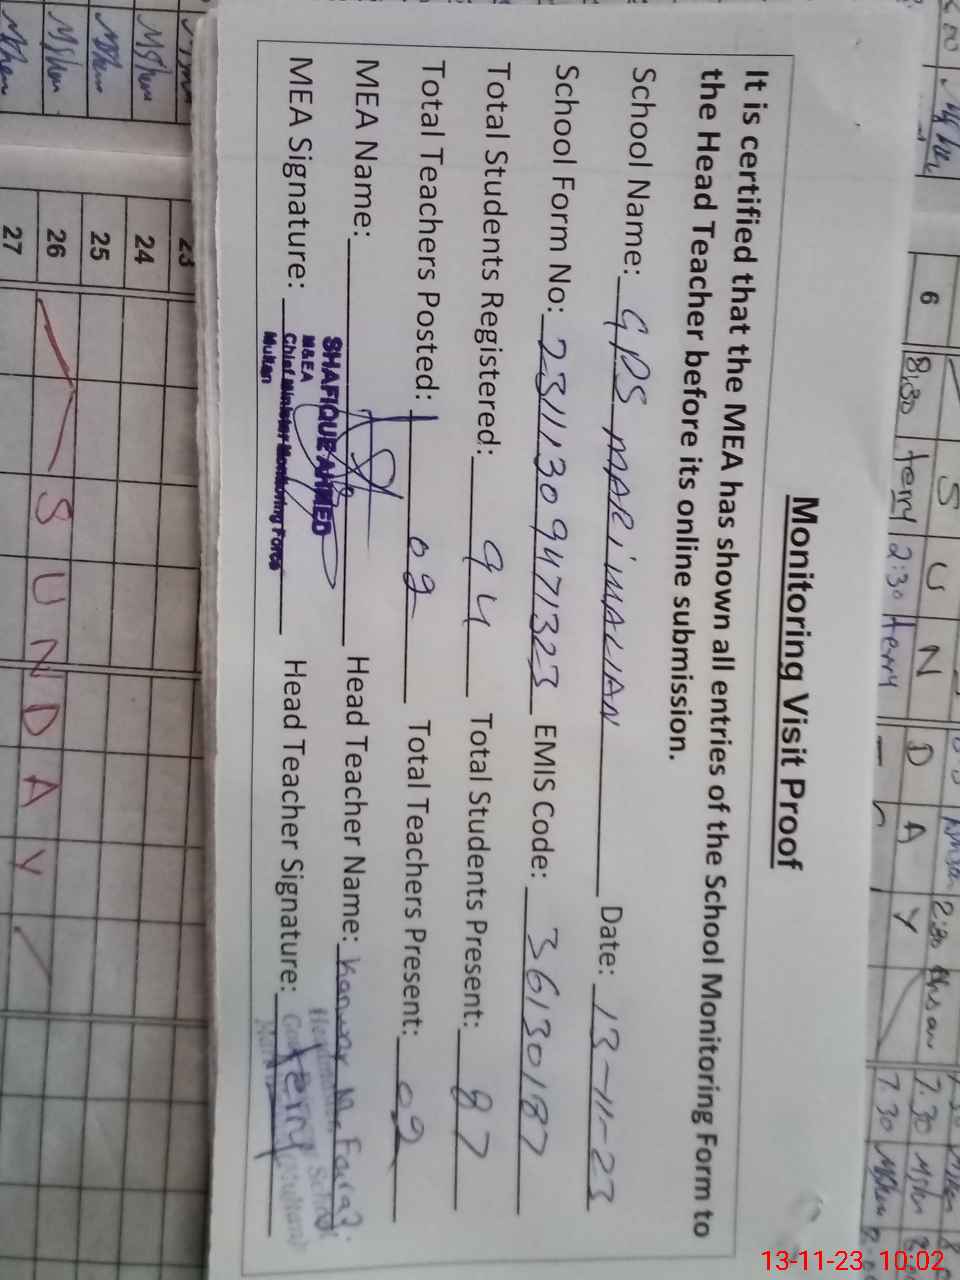 Monitoring Visit Proof
It is certified that the MEA has shown all entries of the School Monitoring Form to
the Head Teacher before its online submission.
School Name: GPS MARiMALIAN Date: 13-11-23
School Form No: 23111309471323 EMIS Code: 36130187
Total Students Registered: 94 Total Students Present: 87
Total Teachers Posted: 02 Total Teachers Present: 02
MEA Name: Head Teacher Name: Kanwar M.
MEA Signature: Head Teacher Signature:
SHAFIQUE AHMED
M&EA
Chief Minister Monitoring Force
Multan
6 8:30 terry 2:30 terry
S U N D A Y
2:30 Ahsan 7.30
7 30
23
24
25
26 S U N D A Y
27
13-11-23 10:02